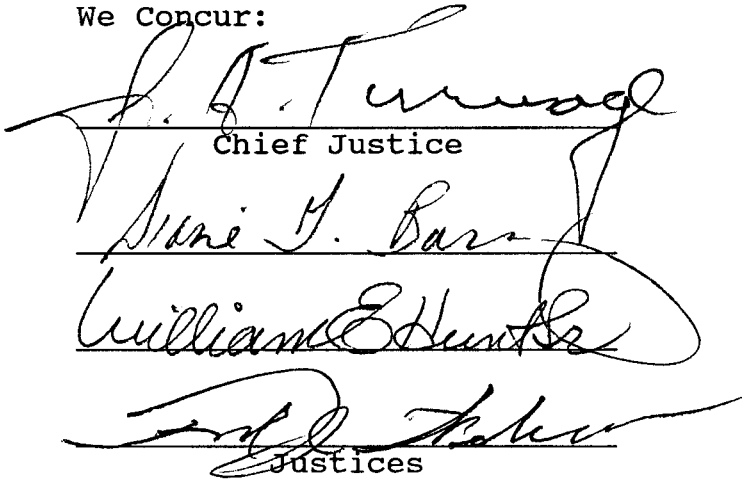 We Concur:
J. A. Turnage
Chief Justice
Diane G. Barz
William E Hunt Sr
Justices